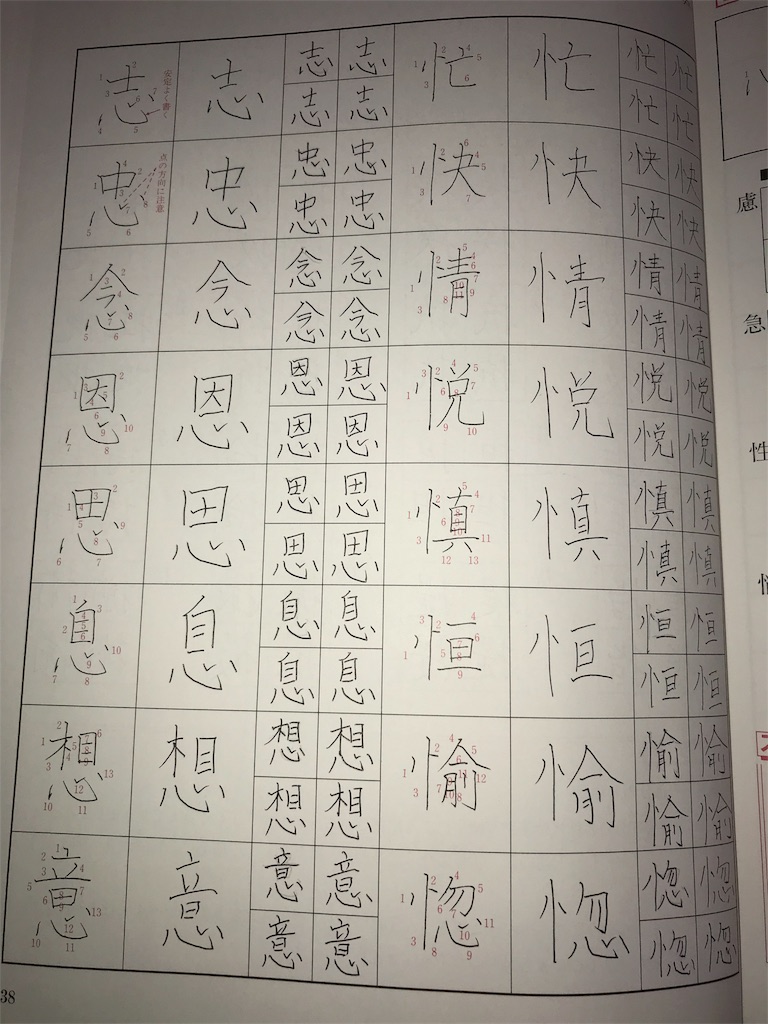 志 志 志 志 忙 忙 忙 忙
志 志 忙 忙
安定よく書く
忠 忠 忠 忠 快 快 快 快
忠 忠 快 快
点の方向に注意
念 念 念 念 情 情 情 情
念 念 情 情
恩 恩 恩 恩 悦 悦 悦 悦
恩 恩 悦 悦
思 思 思 思 慎 慎 慎 慎
思 思 慎 慎
息 息 息 息 恒 恒 恒 恒
息 息 恒 恒
想 想 想 想 愉 愉 愉 愉
想 想 愉 愉
意 意 意 意 惚 惚 惚 惚
意 意 惚 惚
38
慮
急
性